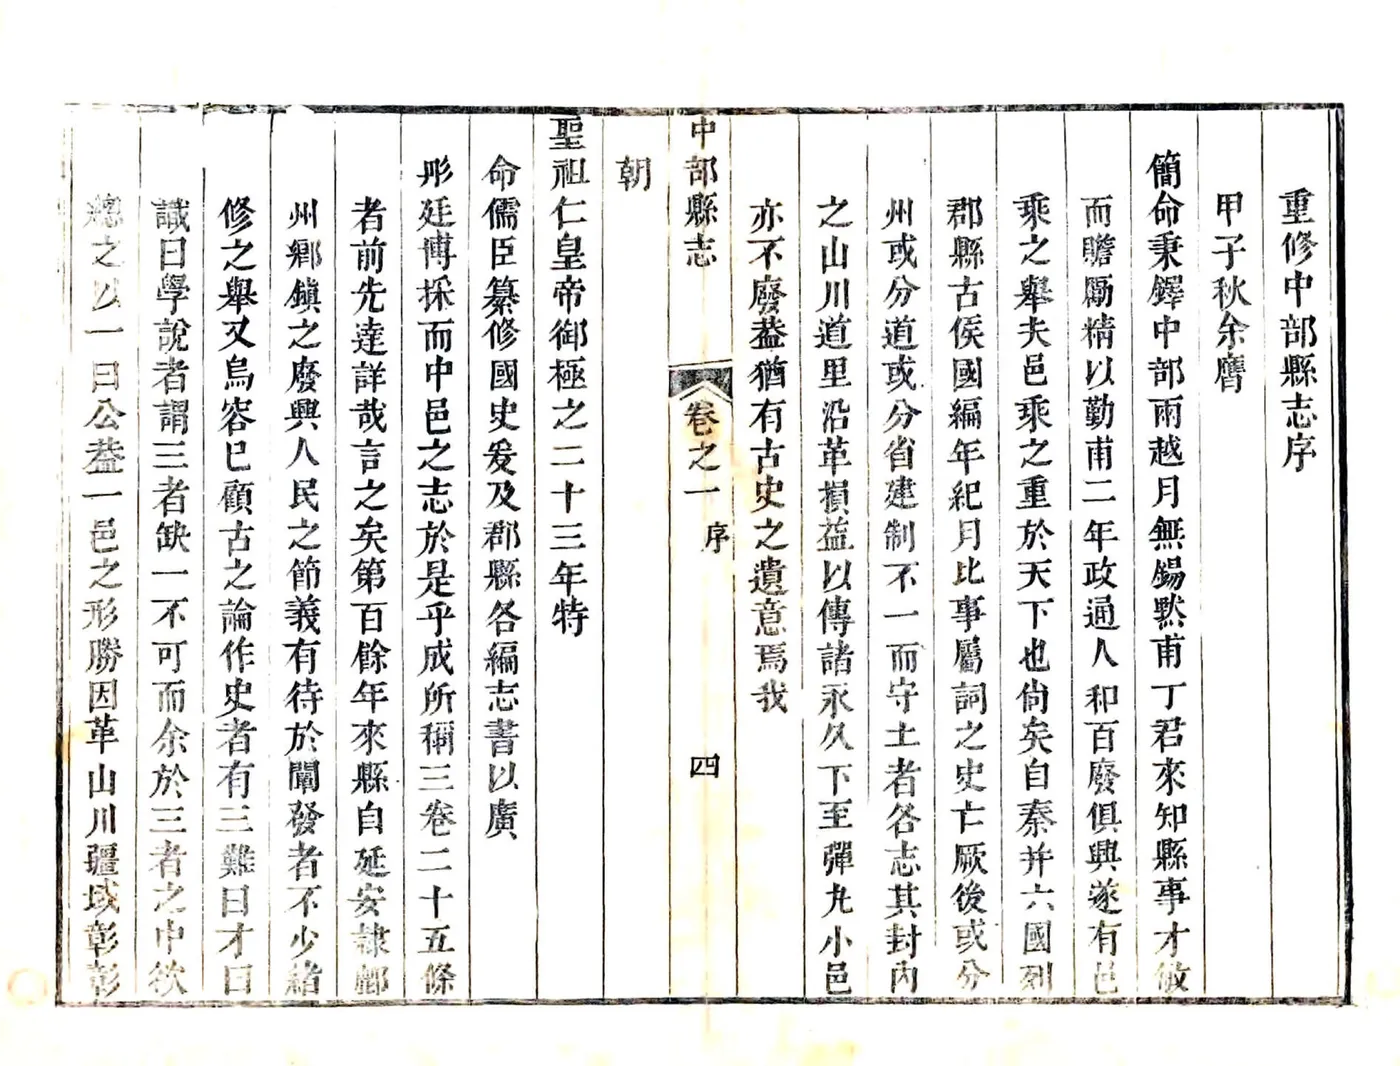 重修中部縣志序
甲子秋余膺
簡命秉鐸中部兩越月無錫默甫丁君來知縣事才敏
而贍勵精以勤甫二年政通人和百廢俱興遂有邑
乘之舉夫邑乘之重於天下也尙矣自秦并六國列
郡縣古侯國編年紀月比事屬詞之史亡厥後或分
州或分道或分省建制不一而守土者各志其封內
之山川道里沿革損益以傳諸永久下至彈丸小邑
亦不廢葢猶有古史之遺意焉我
中部縣志 卷之一 序 四
朝
聖祖仁皇帝御極之二十三年特
命儒臣纂修國史爰及郡縣各編志書以廣
彤廷博採而中邑之志於是乎成所稱三卷二十五條
者前先達詳哉言之矣第百餘年來縣自延安隷鄜
州鄉鎮之廢興人民之節義有待於闡發者不少緒
修之舉又烏容已顧古之論作史者有三難曰才曰
識曰學說者謂三者缺一不可而余於三者之中欲
總之以一曰公葢一邑之形勝因革山川疆域彰彰